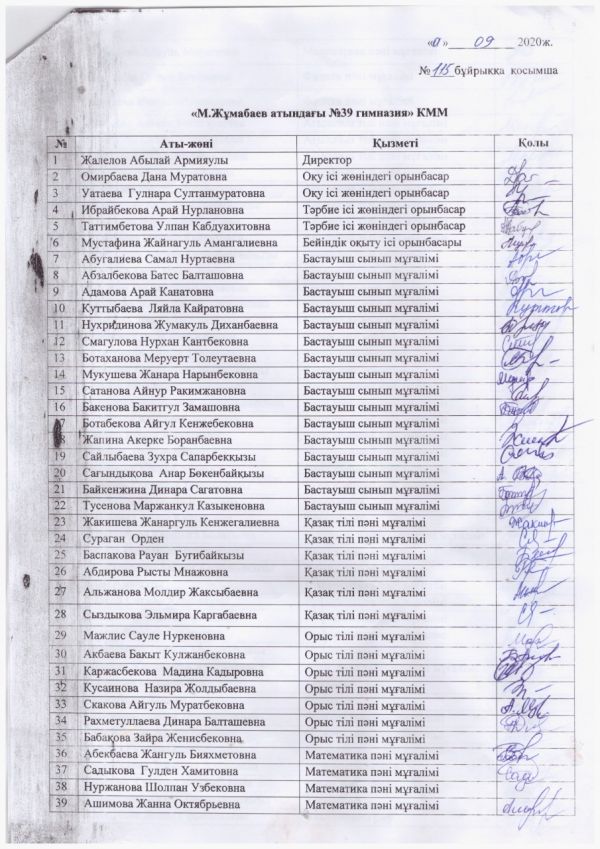 « » 09 2020ж.
№ 115 бұйрыққа қосымша
«М.Жұмабаев атындағы №39 гимназия» КММ
№ Аты-жөні Қызметі Қолы
1 Жалелов Абылай Армияулы Директор
2 Омирбаева Дана Муратовна Оқу ісі жөніндегі орынбасар
3 Уатаева Гулнара Султанмуратовна Оқу ісі жөніндегі орынбасар
4 Ибрайбекова Арай Нурлановна Тәрбие ісі жөніндегі орынбасар
5 Таттимбетова Улпан Кабдуахитовна Тәрбие ісі жөніндегі орынбасар
6 Мустафина Жайнагуль Амангалиевна Бейіндік оқыту ісі орынбасары
7 Абугалиева Самал Нуртаевна Бастауыш сынып мұғалімі
8 Абзалбекова Батес Балташовна Бастауыш сынып мұғалімі
9 Адамова Арай Канатовна Бастауыш сынып мұғалімі
10 Куттыбаева Ляйла Кайратовна Бастауыш сынып мұғалімі
11 Нухридинова Жумакуль Диханбаевна Бастауыш сынып мұғалімі
12 Смагулова Нурхан Кантбековна Бастауыш сынып мұғалімі
13 Ботаханова Меруерт Толеутаевна Бастауыш сынып мұғалімі
14 Мукушева Жанара Нарынбековна Бастауыш сынып мұғалімі
15 Сатанова Айнур Ракимжановна Бастауыш сынып мұғалімі
16 Бакенова Бакитгул Замашовна Бастауыш сынып мұғалімі
17 Ботабекова Айгул Кенжебековна Бастауыш сынып мұғалімі
18 Жапина Акерке Боранбаевна Бастауыш сынып мұғалімі
19 Сайлыбаева Зухра Сапарбекқызы Бастауыш сынып мұғалімі
20 Сағындықова Анар Бөкенбайқызы Бастауыш сынып мұғалімі
21 Байкенжина Динара Сагатовна Бастауыш сынып мұғалімі
22 Тусенова Маржанкул Казыкеновна Бастауыш сынып мұғалімі
23 Жакишева Жанаргуль Кенжегалиевна Қазақ тілі пәні мұғалімі
24 Сураган Орден Қазақ тілі пәні мұғалімі
25 Баспакова Рауан Бугибайкызы Қазақ тілі пәні мұғалімі
26 Абдирова Рысты Мнажовна Қазақ тілі пәні мұғалімі
27 Альжанова Молдир Жаксыбаевна Қазақ тілі пәні мұғалімі
28 Сыздыкова Эльмира Каргабаевна Қазақ тілі пәні мұғалімі
29 Мажлис Сауле Нуркеновна Орыс тілі пәні мұғалімі
30 Акбаева Бакыт Кулжанбековна Орыс тілі пәні мұғалімі
31 Каржасбекова Мадина Кадыровна Орыс тілі пәні мұғалімі
32 Кусаинова Назира Жолдыбаевна Орыс тілі пәні мұғалімі
33 Скакова Айгуль Муратбековна Орыс тілі пәні мұғалімі
34 Рахметуллаева Динара Балташевна Орыс тілі пәні мұғалімі
35 Бабақова Зайра Женисбековна Орыс тілі пәні мұғалімі
36 Абекбаева Жангуль Бияхметовна Математика пәні мұғалімі
37 Садыкова Гулден Хамитовна Математика пәні мұғалімі
38 Нуржанова Шолпан Узбековна Математика пәні мұғалімі
39 Ашимова Жанна Октябрьевна Математика пәні мұғалімі